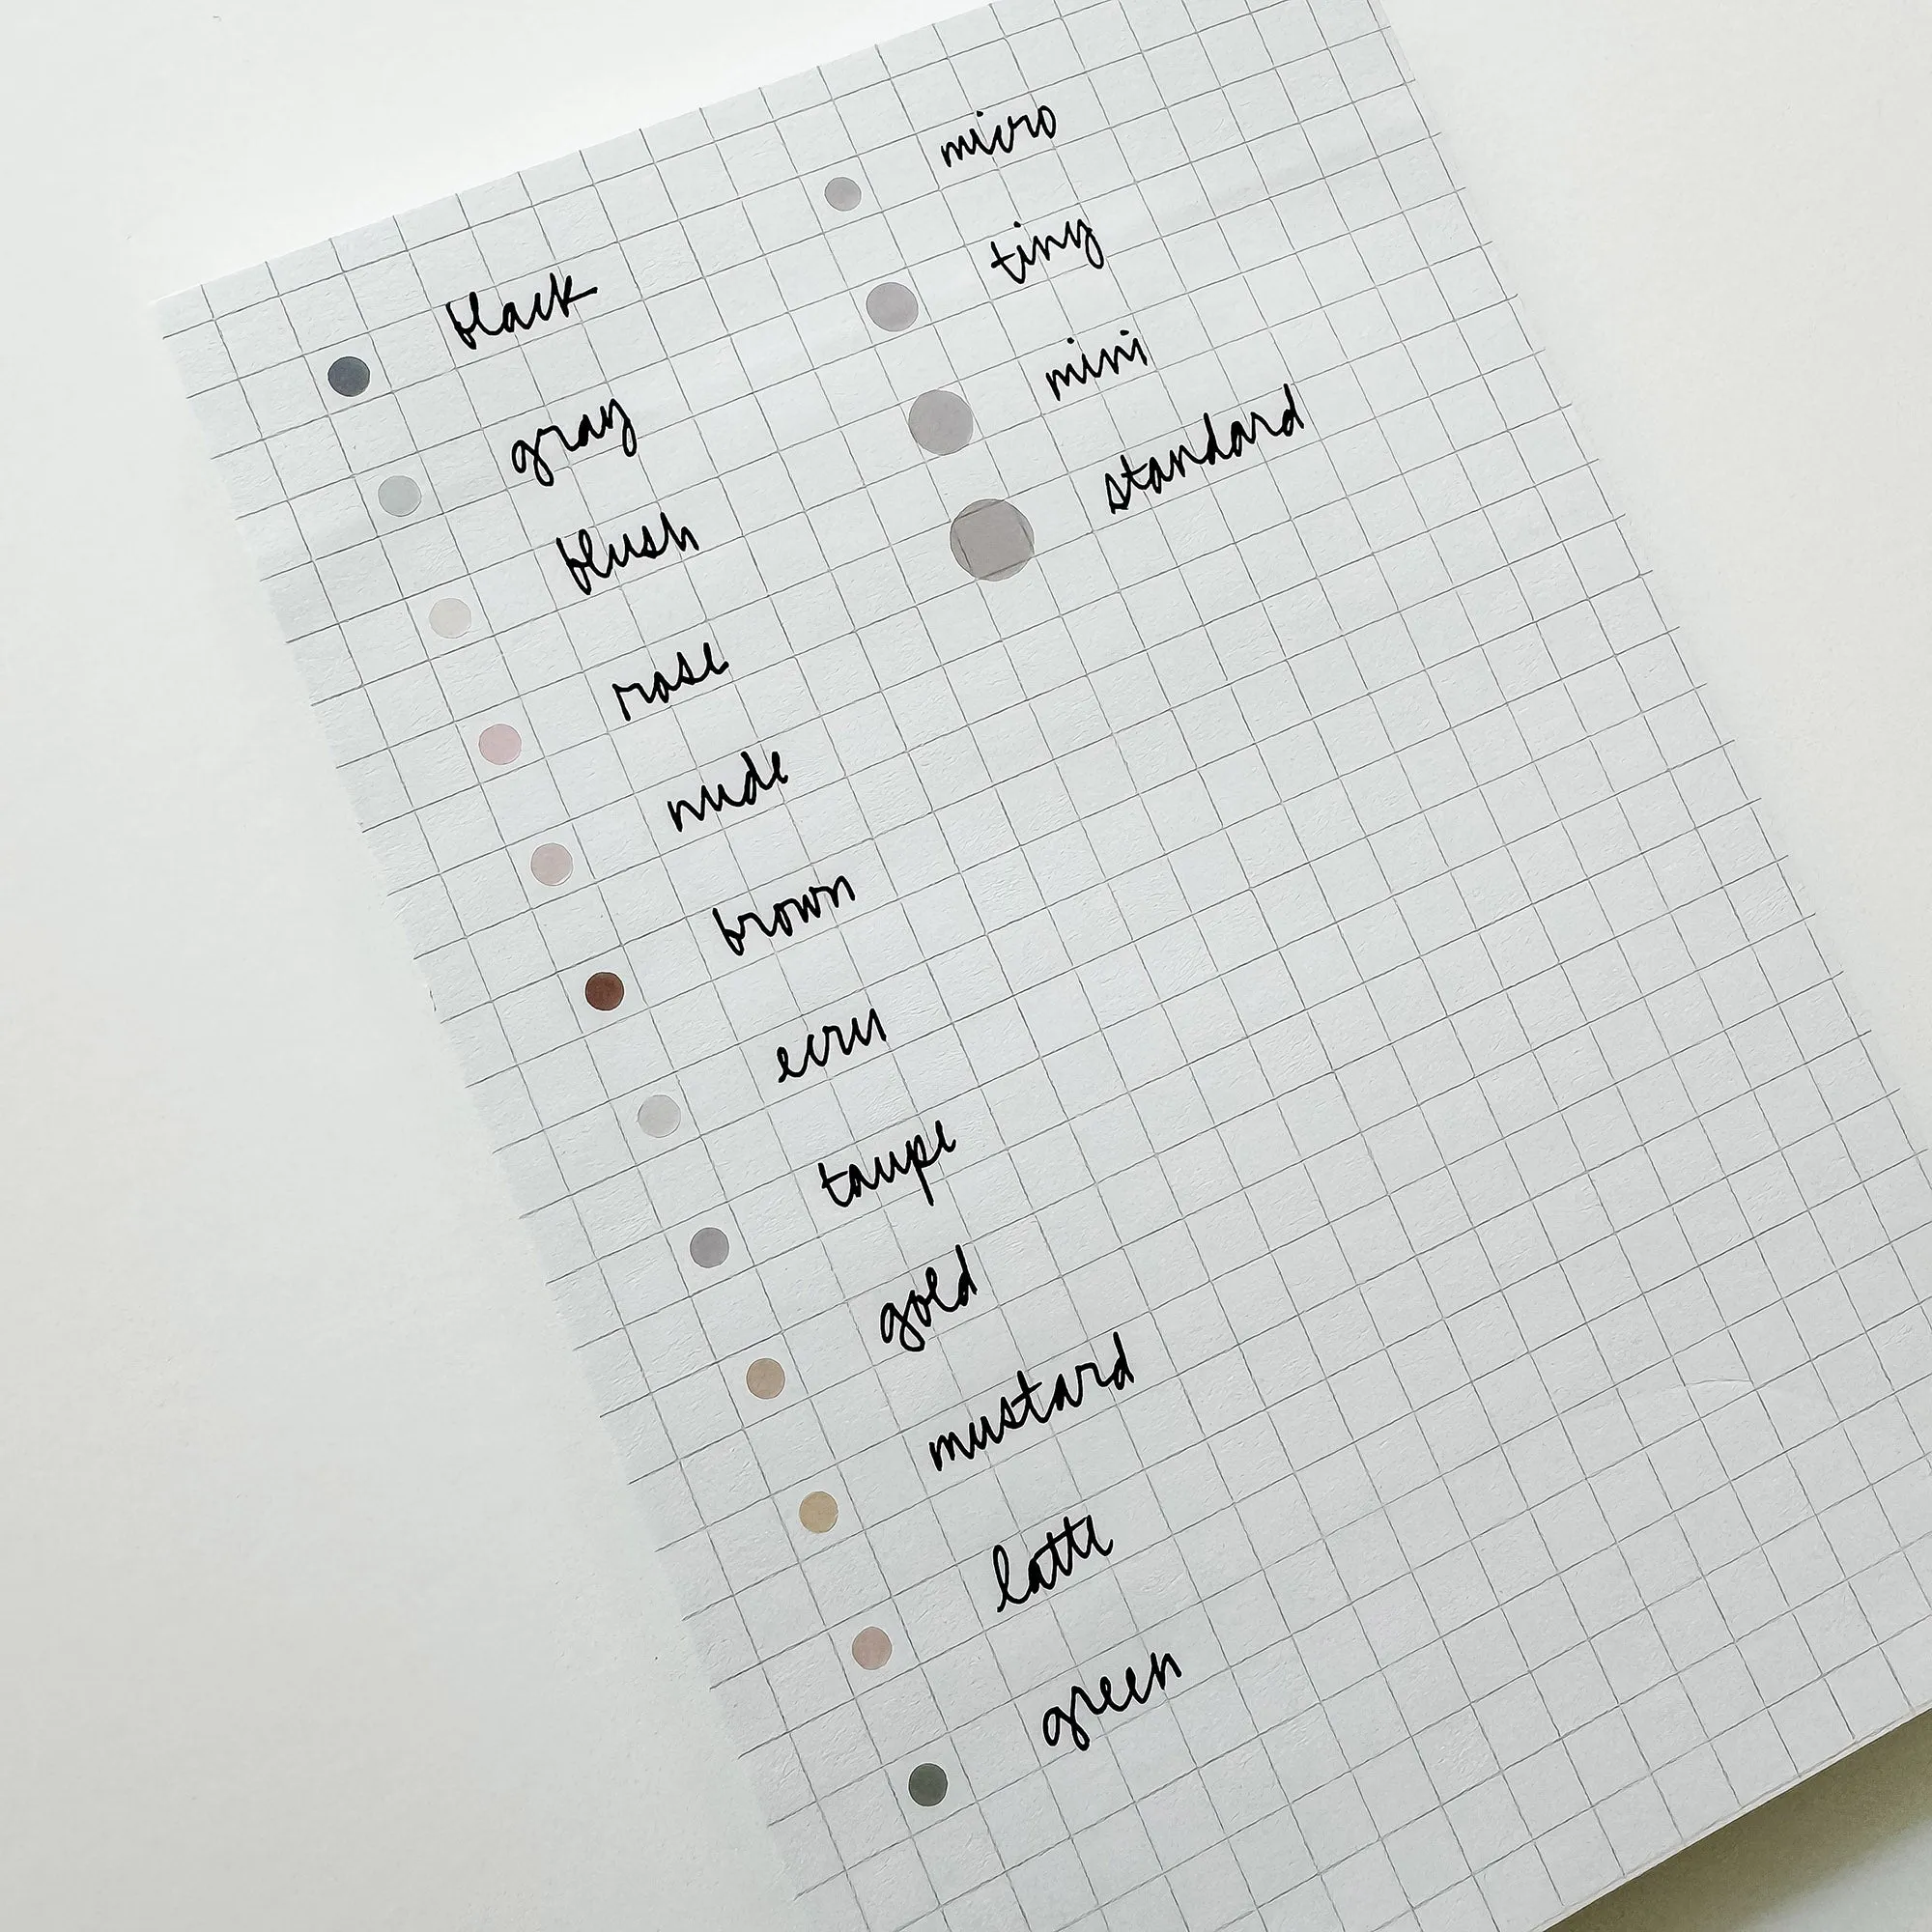 black
gray
blush
rose
nude
brown
ecru
taupe
gold
mustard
latte
green
micro
tiny
mini
standard